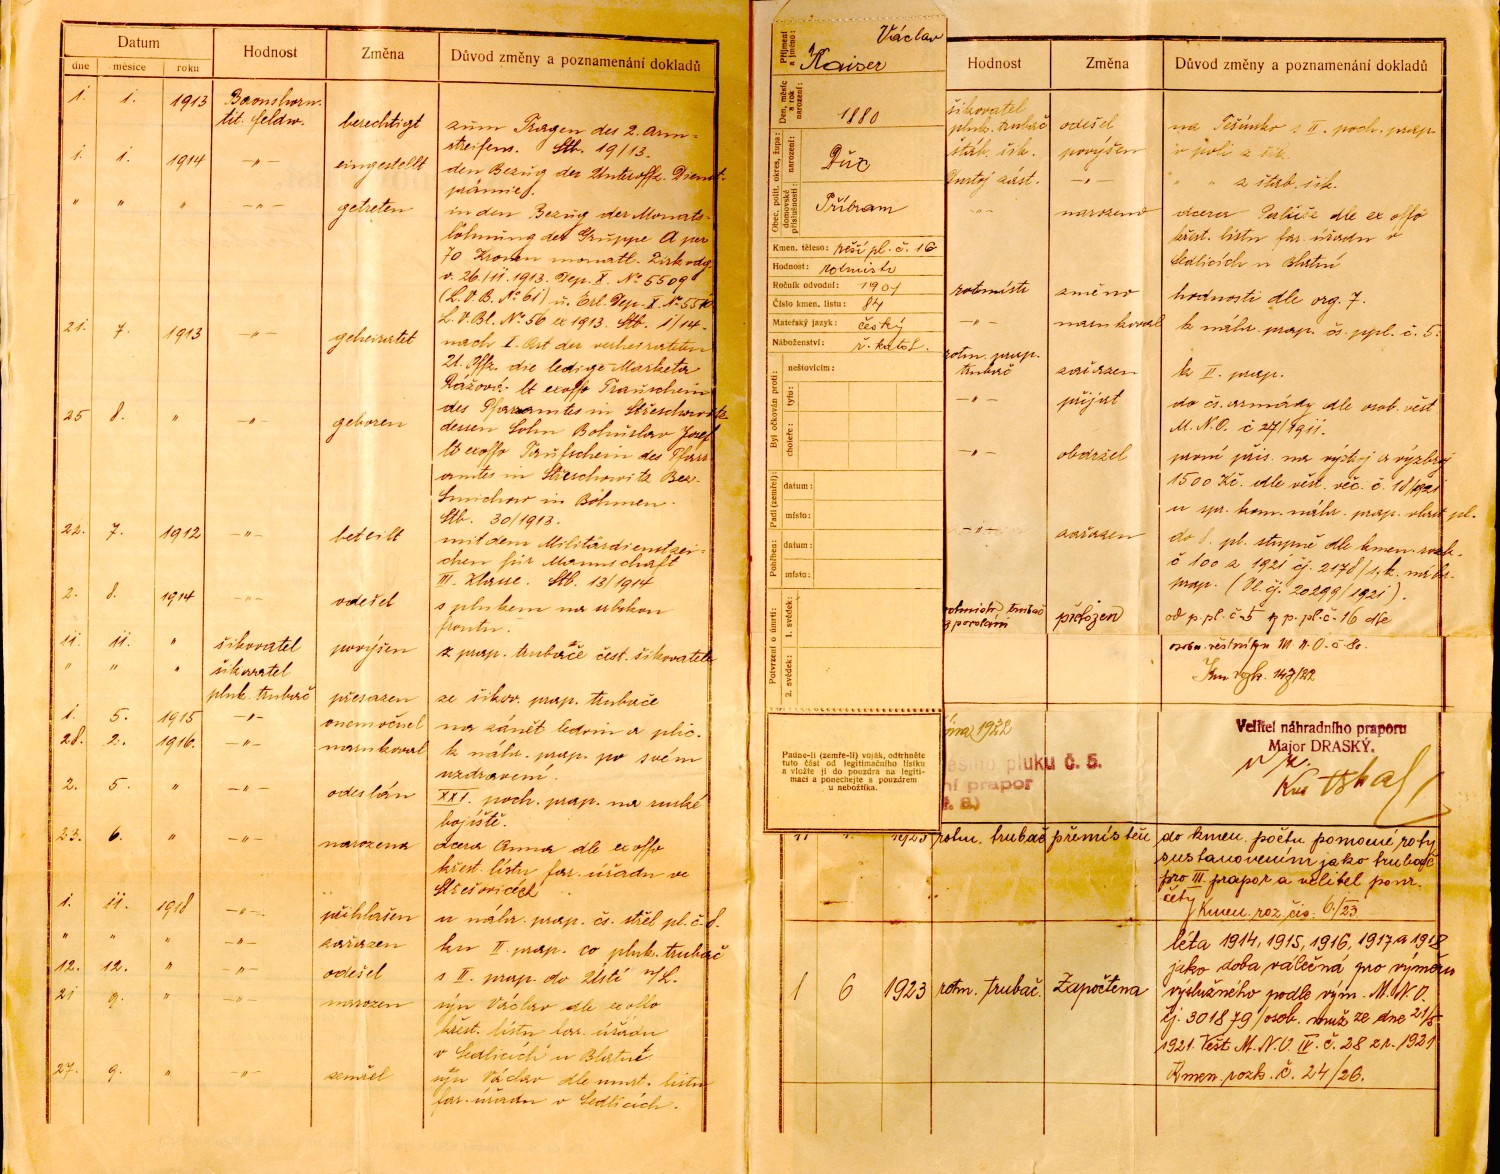 Datum
Hodnost
Změna
Důvod změny a poznamenání dokladů
dne
měsíce
roku
1. 1. 1913
tit. feldw. berechtigt zum Tragen des 2. Arm-
streifens. Stb. 19/13.
1. 1. 1914 -"- eingestellt den Bezug der Unteroffz. Dienst-
prämie.
" " " -"- getreten in den Bezug der Monats-
löhnung der Gruppe A per
70 Kronen monatl.
v. 26/11 1913. Dep. X. No 5509
(L.V.B. No 61) u. Erl. Dep. X No
L.V.Bl. No 56 ex 1913. Stb. 1/14.
21. 7. 1913 -"- geheiratet nach I. Art der verheirateten
U. Offz. die ledige Marketa
lt exoffo Trauschein
25 8. " -"- geboren des Pfarramtes in
dessen Sohn Bohuslav Josef
lt exoffo Taufschein des Pfarr-
amtes in Střeschowitz Bez.
Smichow in Böhmen.
Stb. 30/1913.
22. 7. 1912 -"- beteilt mit dem Militärdienstzei-
chen für Mannschaft
III. Klasse. Stb. 13/1914
2. 8. 1914 -"- odešel s plukem na
frontu.
11. 11. " šikovatel povýšen z prap. trubače čest. šikovatele
" " " šikovatel
pluk. trubač přeřazen ze šikov. prap. trubače
1. 5. 1915 -"- onemocněl na zánět ledvin a plic.
28. 2. 1916. -"- narukoval k náhr. prap. po svém
uzdravení.
2. 5. " -"- odeslán XXI. poch. prap. na ruské
bojiště.
23. 6. " -"- narozena dcera Anna dle ex offo
křest. listu far. úřadu ve
Střešovicích
1. 11. 1918 -"- přihlášen u náhr. prap. čs. střel pl. č. 8.
" " " -"- zařazen ku II. prap. co pluk. trubač
12. 12. " -"- odešel s II. prap. do Ústí n/L.
21 9. " -"- narozen syn Václav dle ex offo
křest. listu far. úřadu
v Sedlicích u Blatné
27. 9. " -"- zemřel syn Václav dle úmrt. listu
far. úřadu v Sedlicích.
Příjmení a jméno:
Václav
Kaiser
Den, měsíc a rok narození:
1880
Obec, polit. okres, župa:
narození:
domovské příslušnosti:
Příbram
Kmen. těleso: pěší pl. č. 16
Hodnost: rotmistr
Ročník odvodní: 1901
Číslo kmen. listu: 84
Mateřský jazyk: český
Náboženství: ř. katol.
Byl očkován proti:
neštovicím:
tyfu:
choleře:
Padl (zemřel):
datum:
místo:
Pohřben:
datum:
místo:
Potvrzení o úmrtí:
1. svědek:
2. svědek:
Padne-li (zemře-li) voják, odtrhněte
tuto část od legitimačního lístku
a vložte ji do pouzdra na legiti-
maci a ponechejte s pouzdrem
u nebožtíka.
Hodnost
Změna
Důvod změny a poznamenání dokladů
šikovatel
pluk. trubač odešel na Těšínsko s II. poch. prap.
štáb. šik. povýšen v poli z šik.
Důstoj zást. -"- " " z štáb. šik.
-"- narozena dcera dle ex offo
křest. listu far. úřadu v
Sedlicích u Blatné
rotmistr změna hodnosti dle org. 7.
-"- narukoval k náhr. prap. čs. ppl. č. 5.
rotm. prap.
trubač zařazen k II. prap.
-"- přijat do čs. armády dle osob. věst
M.N.O. č 27/1911.
-"- obdržel první přís. na výstroj a výzbroj
1500 Kč. dle věst. věc. č. 18/1921
u spr. kom. náhr. prap. pl.
-"- zařazen do pl. stupně dle kmen. rozk.
č 100 z 1921 čj. 2178/ náhr.
prap. (Vl. čj. 20299/1921).
rotmistr trubač
z povolání přeložen od p. pl. č. 5 p. pl. č. 16 dle
osob. věstníku M.N.O. č. 80.
Km rozk. 147/22
1922
pluku č. 5.
prapor
Velitel náhradního praporu
Major DRASKÝ.
1923 rotm. trubač přemístěn do kmen. počtu pomocné roty
s ustanovením jako trubač
pro III. prapor a velitel pomr.
čety
Kmen. roz. čís. 6/23
léta 1914, 1915, 1916, 1917 a 1918
jako doba válečná pro výměru
1 6 1923 rotm. trubač. Započtena výslužného podle vým. M.N.O.
čj. 301879/osob. muž. ze dne 21/5
1921. Věst. M.N.O. IV. č. 28 z r. 1921
Kmen. rozk. č. 24/26.